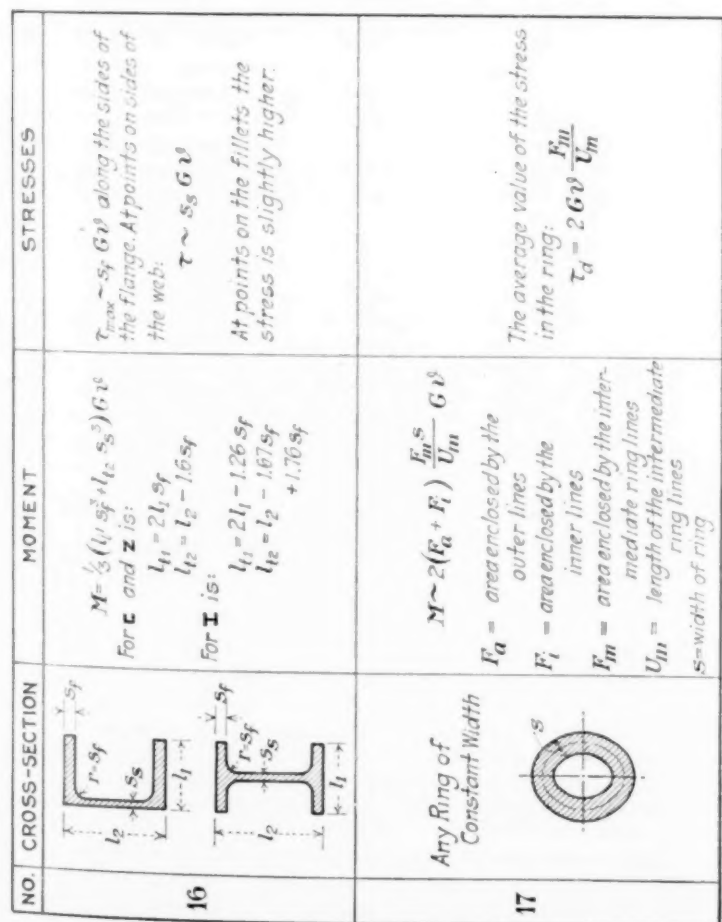 NO. CROSS-SECTION MOMENT STRESSES
16
l₂
r=s_f
s_f
s_s
l₁
l₂
s_f
r=s_f
s_s
l₁
M=⅓(l_t1 s_f³+l_t2 s_s³)Gϑ
For C and Z is:
l_t1=2l₁s_f
l_t2=l₂-1.6s_f
For I is:
l_t1=2l₁-1.26s_f
l_t2=l₂-1.67s_f
+1.76s_f
τ_max~s_f Gϑ along the sides of
the flange. At points on sides of
the web:
τ~s_s Gϑ
At points on the fillets the
stress is slightly higher.
17
Any Ring of
Constant Width
s
M~2(F_a+F_i) F_m s/U_m Gϑ
F_a = area enclosed by the
outer lines
F_i = area enclosed by the
inner lines
F_m = area enclosed by the inter-
mediate ring lines
U_m = length of the intermediate
ring lines
s=width of ring
The average value of the stress
in the ring:
τ_d = 2Gϑ F_m/U_m